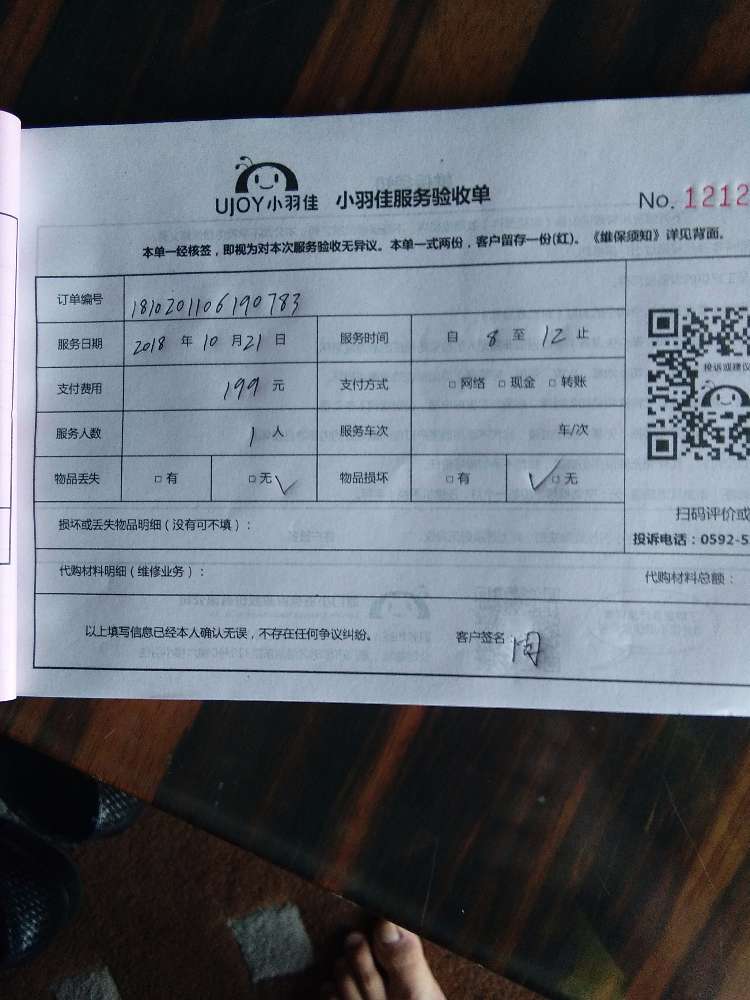 UJOY小羽佳 小羽佳服务验收单 No. 1212
本单一经核签，即视为对本次服务验收无异议。本单一式两份，客户留存一份(红)。《维保须知》详见背面。
订单编号 1810201106190783
服务日期 2018 年 10 月 21 日 服务时间 自 8 至 12 止
支付费用 199 元 支付方式 □ 网络 □ 现金 □ 转账
投诉或建议
服务人数 1 人 服务车次 车/次
物品丢失 □ 有 □ 无 ✓ 物品损坏 □ 有 ✓ □ 无
扫码评价或
损坏或丢失物品明细（没有可不填）：
投诉电话：0592-5
代购材料明细（维修业务）： 代购材料总额：
以上填写信息已经本人确认无误，不存在任何争议纠纷。 客户签名 周